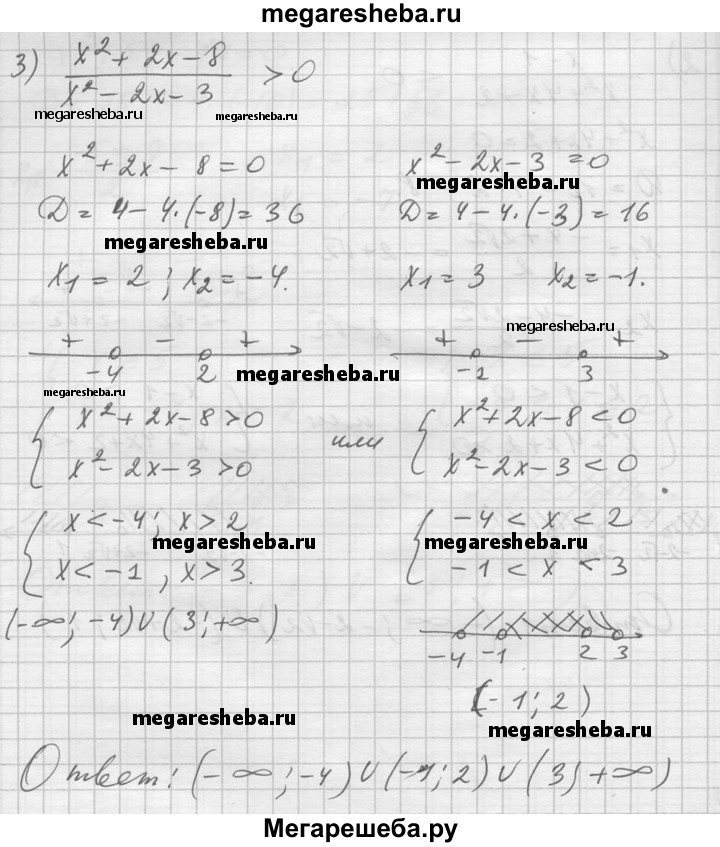 megaresheba.ru
3) x² + 2x - 8 / x² - 2x - 3 > 0
megaresheba.ru megaresheba.ru
x² + 2x - 8 = 0 x² - 2x - 3 = 0
megaresheba.ru
D = 4 - 4·(-8) = 36 D = 4 - 4·(-3) = 16
megaresheba.ru
x₁ = 2; x₂ = -4. x₁ = 3 x₂ = -1.
megaresheba.ru
+ - + + - +
-4 2 -1 3
megaresheba.ru
megaresheba.ru
{ x² + 2x - 8 > 0 или { x² + 2x - 8 < 0
x² - 2x - 3 > 0 x² - 2x - 3 < 0
{ x < -4; x > 2 { -4 < x < 2
megaresheba.ru megaresheba.ru
x < -1, x > 3. -1 < x < 3
(-∞; -4) ∪ (3; +∞)
-4 -1 2 3
(-1; 2)
megaresheba.ru
megaresheba.ru
Ответ: (-∞; -4) ∪ (-1; 2) ∪ (3; +∞)
Мегарешеба.ру